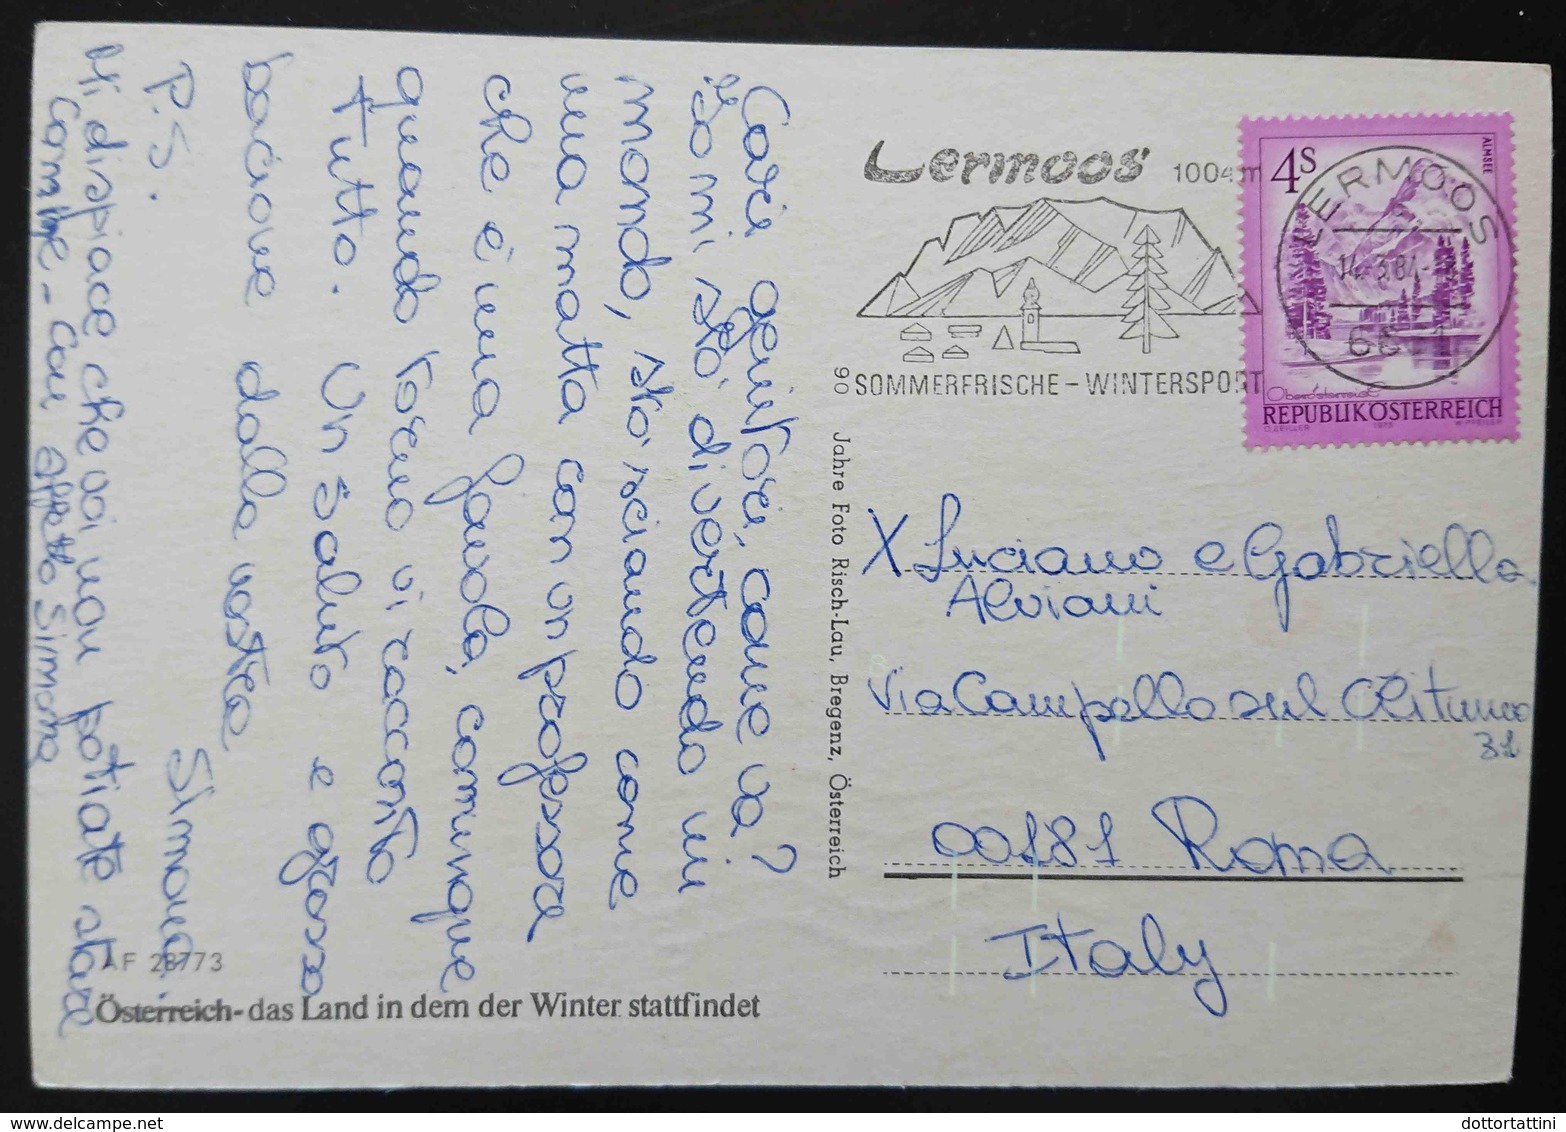 Cari genitori, come va?
Io mi stò divertendo un
mondo, stò sciando come
una matta con un professore
che è una favola, comunque
quando torno vi racconto
tutto. Un saluto e grosso
bacione dalla vostra
Simona.
P.S.
Mi dispiace che voi non potiate stare
con me - con affetto Simona
Lermoos 1004 m
SOMMERFRISCHE - WINTERSPORT
90
4S
ALMSEE
LERMOOS
14.-3.84-
Oberösterreich
REPUBLIK ÖSTERREICH
O. ZEILLER 1973 W. PFEILER
Jahre Foto Risch-Lau, Bregenz, Österreich
X Luciano e Gabriella
Alviani
Via Campello sul Clitunno
31
00181 Roma
Italy
AF 28773
Österreich - das Land in dem der Winter stattfindet
dottortattini